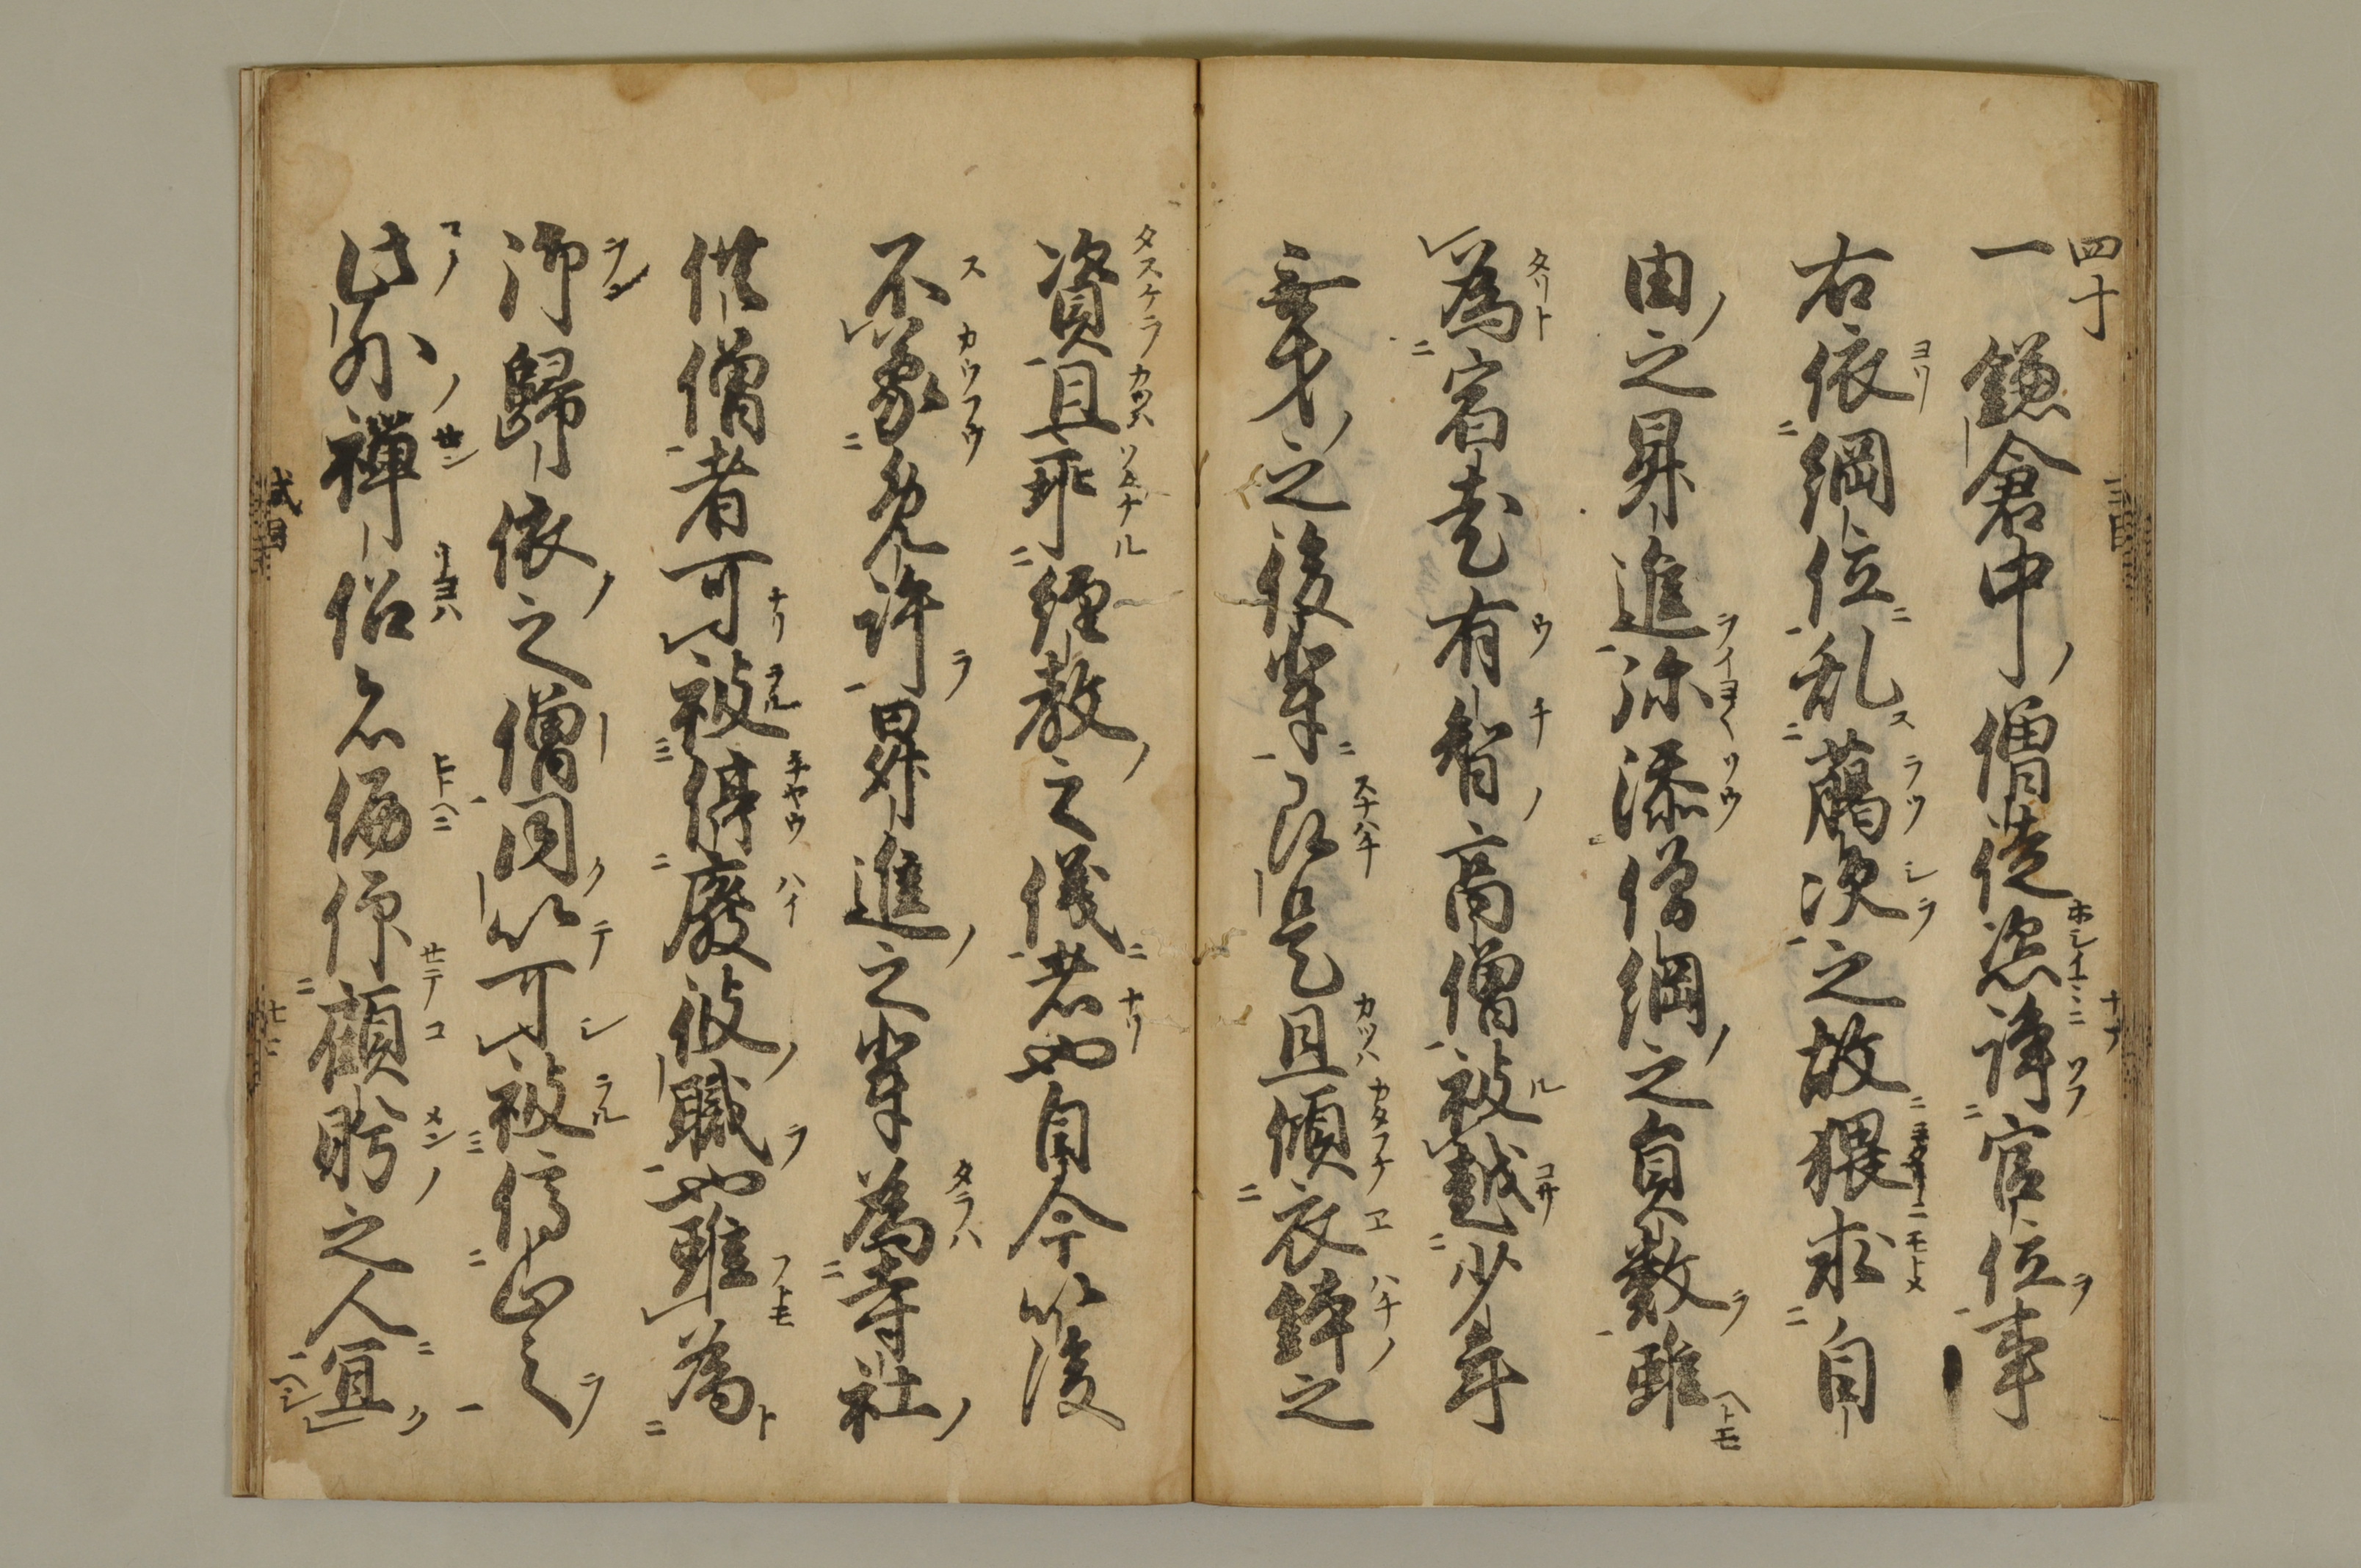 四十
一 鎌倉中僧徒恣諍官位事
右依綱位乱﨟次之故猥求自
由之昇進弥添僧綱之員数雖
為宿老有智高僧被越少年
無才之後輩即是且傾衣鉢之
資且乖経教之儀者也自今以後
不蒙免許昇進之輩為寺社
供僧者可被停廃彼職也雖為
御帰依之僧同以可被停止之
此外禅侶者偏仰顧眄之人宜